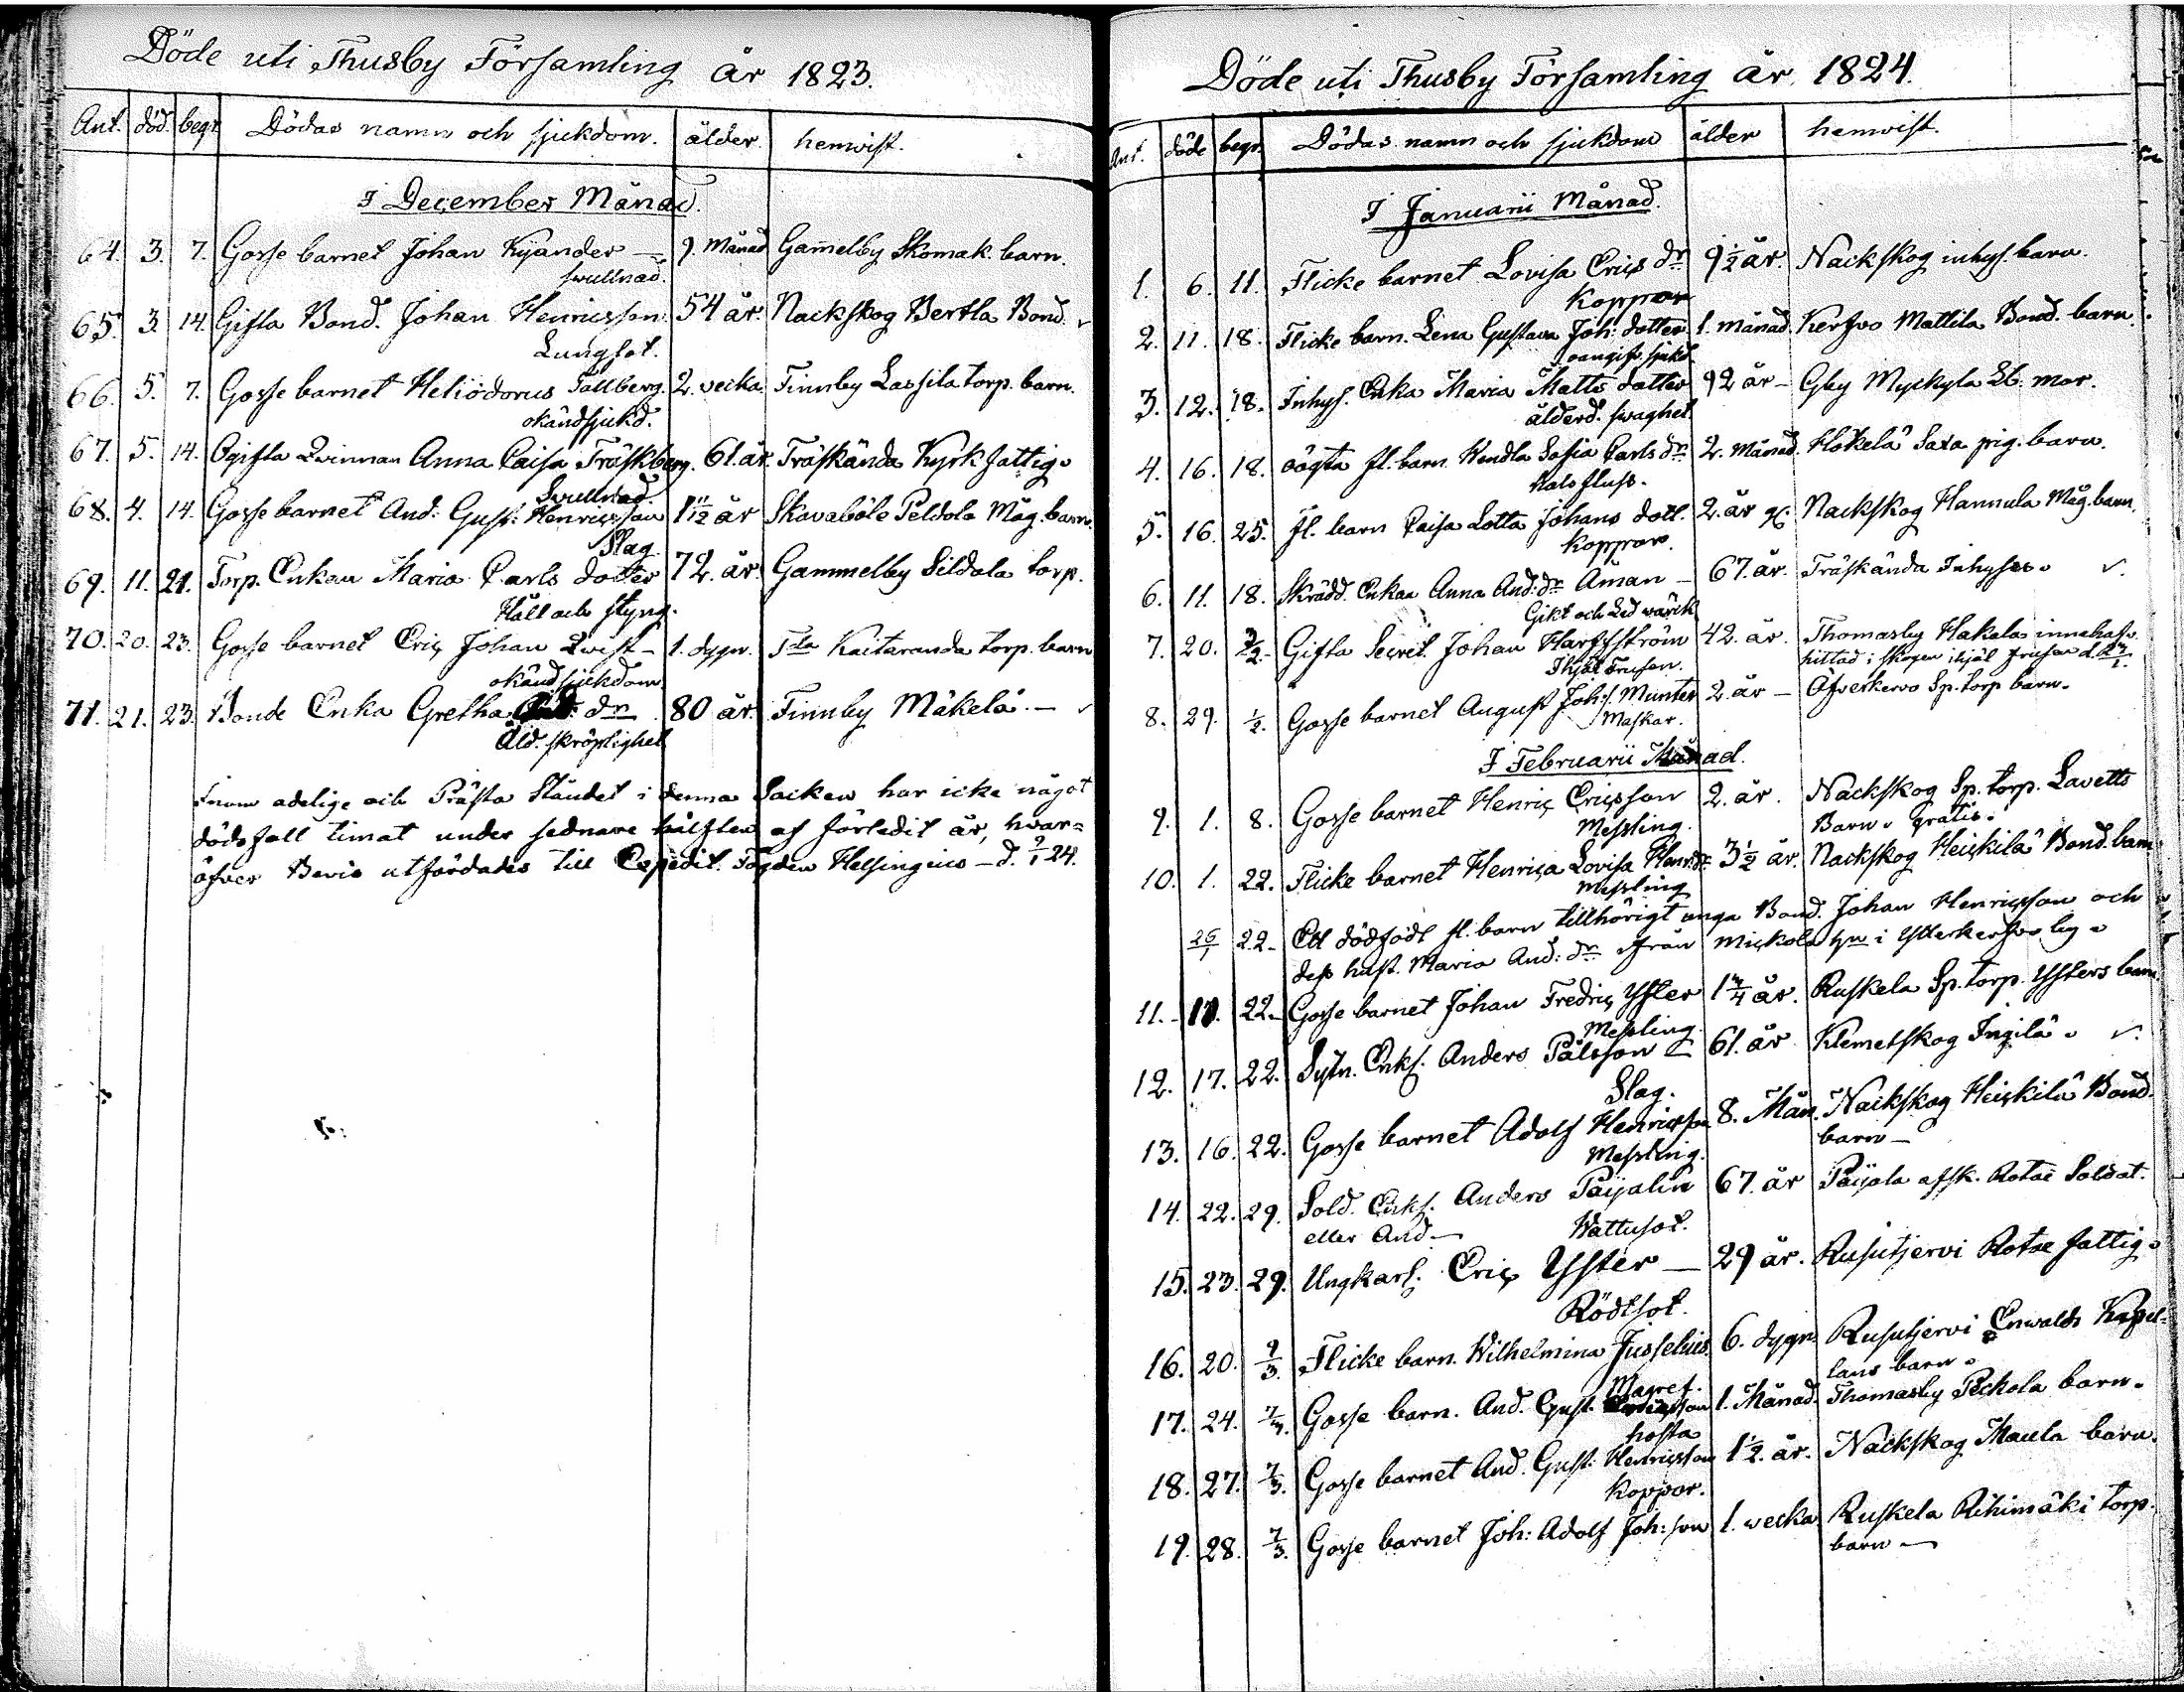 Döde uti Thusby Församling år 1823.
Ant. död. begr. Dödas namn och sjukdom. ålder. hemvist.
I December Månad.
64. 3. 7. Gosse barnet Johan Kyander — 9. Månad Gam̄elby Skomak. barn.
swullnad.
65. 3. 14. Gifta Bond. Johan Henricsson. 54 år. Nackskog Bertla Bond.
Lungsot.
66. 5. 7. Gosse barnet Heliodorus Sällberg. 2. vecka. Finnby Lassila torp. barn.
okändsjukd.
67. 5. 14. Ogifta Qvinnan Anna Caisa Träskberg. 61. år. Träskända Kyrk fattig.
Svullnad.
68. 4. 14. Gosse barnet And: Gust: Henricsson 1 11/12 år Skavaböle Peldola Måg. barn.
Slag.
69. 11. 21. Torp. Enkan Maria Carls dotter 72. år. Gammelby Sildala torp.
Håll och styng.
70. 20. 23. Gosse barnet Eric Johan Qvist — 1. dygn. Kaitaranda torp. barn
okänd sjukdom.
71. 21. 23. Bonde Enka Gretha dr 80 år. Finnby Mäkelä. —
Åld. skröplighet
Inom adelige och Präste Ståndet i denna Socken har icke något
dödsfall timat under sednare hälften af förledit år, hvar=
öfver Bevis utfärdades till Expedit. Fogden Helsingius — d. 9/1 24.
Döde uti Thusby Församling år 1824.
Ant. döde begr. Dödas namn och sjukdom ålder hemvist.
I Januarii Månad.
1. 6. 11. Flicke barnet Lovisa Erics dr 9 1/2 år. Nackskog inhys. barn.
Koppor
2. 11. 18. Flicke barn. Lena Gustava Joh: dotter 1. månad. Kerfvo Mattila Bond. barn.
oangifv. sjukd.
3. 12. 18. Inhys. Enka Maria Matts dotter 92 år — Gby Myckyla
ålderd. swaghet
4. 16. 18. oägta fl. barn Hendla Sofia Carls dr 2. Månad. Hökelä Saxa pig. barn.
Halsfluss.
5. 16. 25. Fl. barn Caisa Lotta Johans dott. 2. år Nackskog Hannula Måg. barn
Koppor.
6. 11. 18. Skrädd. Enkan Anna And: dr Åman — 67. år. Träskända Inhyses.
Gikt och Led wärck
7. 20. 2/2. Gifta Secret. Johan Harfsström 42. år. Thomasby Hakala innehafv.
Ihjäl frusen. hittad i skogen ihjäl frusen d.
8. 29. 1/2. Gosse barnet August Joh:s. Munter 2. år — Öfverkervo Sp. torp barn.
Maskar.
I Februarii Månad.
9. 1. 8. Gosse barnet Henric Ericsson 2. år. Nackskog Sp. torp. Lavetts
Messling. Barn. gratis.
10. 1. 22. Flicke barnet Henrica Lovisa Henr: dr 3 1/2 år. Nackskog Heickilä Bond. barn
Messling
26/1 22. Ett dödfödt fl. barn tillhörigt unga Bond. Johan Henricsson och
dess hust. Maria And: dr ifrån Mickola hn i Ytterkerfvo by.
11. 11. 22. Gosse barnet Johan Fredric Yster 1 3/4 år. Ruskela Sp. torp. Ysters barn
Messling.
12. 17. 22. Sytn. Enkl. Anders Pålsson — 61. år Klemetskog Ingilä.
Slag.
13. 16. 22. Gosse barnet Adolf Henricsson 8. Mån. Nackskog Heickilä Bond.
Messling. barn —
14. 22. 29. Sold. Enkl. Anders Paijalin 67. år Paijala afsk. Rotae Soldat.
eller And — Wattusot.
15. 23. 29. Ungkarl. Eric Yster — 29 år. Rusutjervi Rotae fattig.
Rödtsot.
16. 20. 9/3. Flicke barn. Wilhelmina Jusselius 6. dygn. Rusutjervi Enwalds Kapel-
Magref. lans barn.
17. 24. 7/3. Gosse barn. And. Gust. 1. Månad. Thomasby Peckola barn.
hosta
18. 27. 7/3. Gosse barnet And. Gust: Henricsson 1 1/2. år. Nackskog Maula barn.
Koppor.
19. 28. 7/3. Gosse barnet Joh: Adolf Joh: son 1. wecka Ruskela Rihimäki torp.
barn —